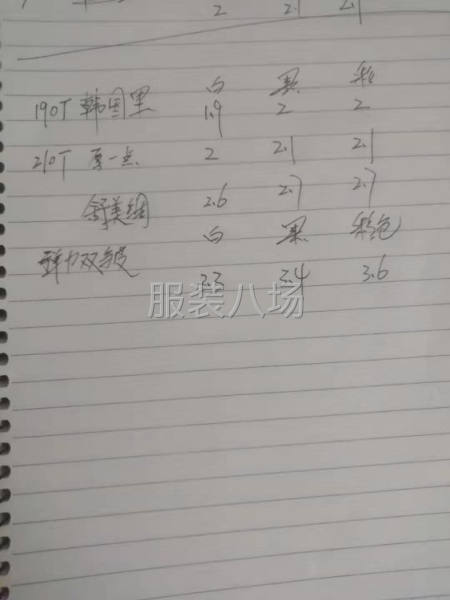 2 2.1 2.1
白 黑 彩
190T 韩国里 1.9 2 2
210T 厚一点 2 2.1 2.1
舒美绸 2.6 2.7 2.7
白 黑 彩色
弹力双皱 3.3 3.4 3.6
服装八场